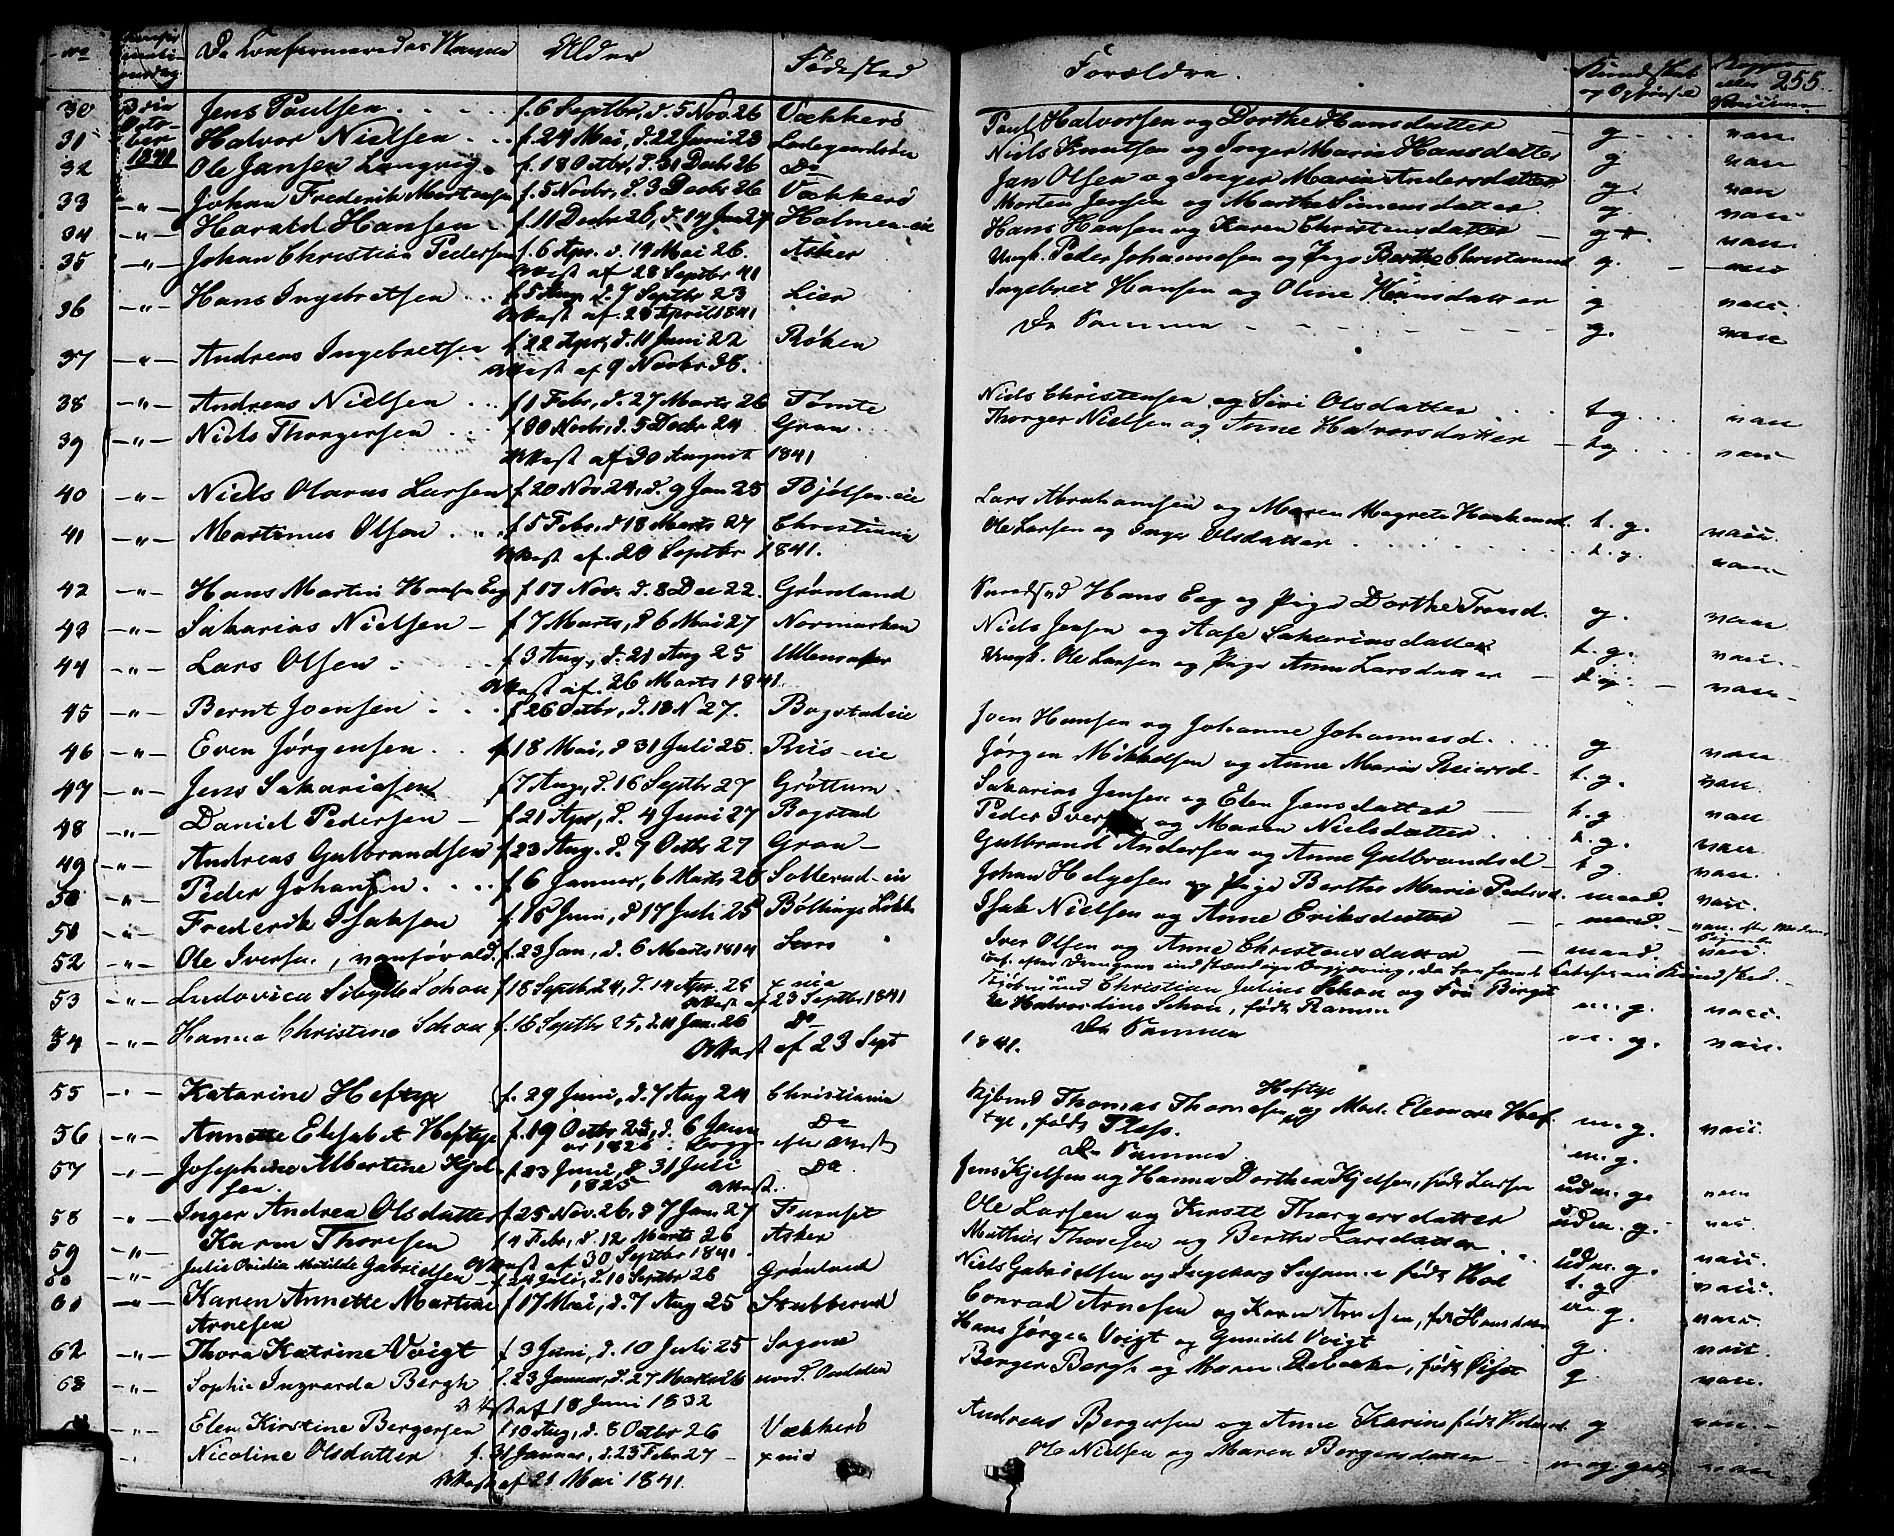 No Confirmationsdag De Confirmeredes Navne Alder Fødested Forældre. Kundskab og Opførsel Koppe eller Vaccine 255.
30 3die Octo- Jens Paulsen f. 6 Septbr, d. 5 Nov. 26 Vækkerø Paul Halvorsen og Dorthe Hansdatter g vacc.
31 ber Halvor Nielsen f. 24 Mai, d. 22 Juni 23 Ladegaardsøen Niels Knutsen og Inger Marie Hansdatter g vacc
32 1841 Ole Jansen Langvig f. 18 Octbr, d. 31 Decbr 26 Do Jan Olsen og Inger Maria Andersdatter g. vacc
33 -"- Johan Frederik Mortensen f. 5 Novbr, d. 3 Decbr 26 Vækkerø Morten Jensen og Marthe Simensdatter g. vacc
34 -"- Harald Hansen f. 11 Decbr 26, d. 14 Jan 27 Holmen-eie Hans Hansen og Karen Christensdatter g vacc.
35 -"- Johan Christian Pedersen f. 6 Apr. d. 19 Mai 26. Asker Ungk. Peder Johannesen og Pige Berthe Christiansd g. vacc
Attest af 28 Septbr 41
36 -"- Hans Ingebretsen f. 5 Aug. d. 7 Septbr 23 Lier Ingebret Hansen og Oline Hansdatter g vacc.
Attest af. 28 April 1841
37 -"- Andreas Ingebretsen f. 22 Apr, d. 11 Juni 22 Røken De Samme g. vacc
Attest af 9 Novbr 38.
38 -"- Andreas Nielsen f. 1 Febr, d. 27 Marts 26 Tømte Niels Christensen og Siri Olsdatter t g. vacc
39 -"- Niels Thorgersen f. 30 Novbr, d. 5 Decbr 24 Gran Thorger Nielsen og Anne Halvorsdatter tg vacc
Attest af 30 August 1841
40 -"- Niels Olavus Larsen f. 20 Nov. 24, d. 9 Jan 25 Bjølsen-eie Lars Abrahamsen og Maren Magrete Haakensd. t. g. vacc.
41 -"- Martinus Olsen f. 5 Febr, d 18 Marts 27 Christiania Ole Larsen og Inger Olsdatter t. g. vacc
Attest af. 20 Septbr 1841.
42 -"- Hans Martin Hansen Eeg f. 17 Nov. d. 8 Dec 22. Grønland Hans Eeg og Pige Dorthe Tronsd. g. vacc
43 -"- Sakarias Nielsen f. 7 Marts, d 6 Mai 27 Normarken Niels Jensen og Aase Sakariasdatter t. g. vacc.
44 -"- Lars Olsen f. 3 Aug, d. 21 Aug 25 Ullensaker Ungk. Ole Larsen og Pige Anne Larsdatter vacc
Attest af. 26 Marts 1841.
45 -"- Bernt Joensen f. 26 Octbr, d. 18 N 27. Bogstadeie Joen Hansen og Johanne Johannesd. g vacc
46 -"- Even Jørgensen f. 18 Mai, d 31 Juli 25. Riis-eie Jørgen Mikkelsen og Anne Maria Reiersd t. g. vacc.
47 -"- Jens Sakariasen f. 7 Aug, d. 16 Septbr 27 Grøttum Sakarias Jensen og Elen Jensdatter t. g vacc
48 -"- Daniel Pedersen f. 21 Apr, d. 4 Juni 27 Bogstad Peder Iversen og Maren Nielsdatter t. g. vacc
49 -"- Andreas Gulbrandsen f. 23 Aug. d. 7 Octbr 27 Gran Gulbrand Andersen og Anne Gulbrandsd t g. vacc.
50 -"- Peder Johansen f. 6 Januar, 6 Marts 26 Sollerud-eie Johan Helgesen og Pige Berthe Marie Pedersd. maad. vacc.
51 -"- Frederik Isaksen f. 15 Juni, d 17 Juli 25 Bøltings Løkke Isak Nielsen og Anne Eriksdatter maad.
52 -"- Ole Iversen, vanfør ald. f. 23 Jan, d. 6 Marts 1814 Iver Olsen og Anne Christensdatter maad vacc.
53 -"- Ludovica Sibylle Schou f. 18 Septbr 24, d. 14 Apr. 25 xnia Kjøbmand Christian Julius Schou og Fru Birgit- m. g. vacc.
Attest af 23 Septbr 1841 te Halvordine Schou, føde Ramm
54 -"- Hanna Christine Schou f. 16 Septbr 25, d. 11 Jan. 26 Do De Sammen m. g. vacc.
Attest af 23 Sept 1841.
55 -"- Katarine Heftye f. 29 Juni, d. 7 Aug 24 Christiania Kjbmd Thomas Thomesen Heftye og Mad. Eleonore Hef- m. g. vacc.
tye, føde Fless.
56 -"- Annette Elisabet Heftye f. 19 Octbr 25, d. 6 Janu Do De Sammen m. g.
ar 1826 begge efter Attest
57 -"- Josephine Albertine Kjel- f. 23 Juni, d 31 Juli Do Jens Kjelsen og Hanna Dorthea Kjelsen, føde Larsen udm. g. vacc
sen 1825 Attest.
58 -"- Inger Andrea Olsdatter f. 25 Nov. 26, d 7 Jan. 27 Ole Larsen og Kirsti Thorgersdatter udm. g. vacc.
59 -"- Karen Thoresen f. 4 Febr, d. 12 Marts 26 Asker Mathias Thoresen og Berthe Larsdatter udm. g. vacc.
Attest af 30 Septbr 1841.
60 -"- Julie Ovidia Matilde Gabrielsen f. 24 Juli, d. 10 Septbr 26 Grønland Niels Gabrielsen og Ingeborg føde Hol t. g vacc.
61 -"- Karen Annette Martine f. 17 Mai, d. 7 Aug 25 Stubberud Conrad Arnesen og Karen Arnesen, føde Hansdatter m. g. vacc.
Arnesen
62 -"- Thora Katrine Voigt f. 3 Juni, d. 10 Juli 25 Sagene Hans Jørgen Voigt og Gunild Voigt g. vacc
63 -"- Sophie Ingvarda Bergh f. 23 Januar, d. 27 Marts 26 Berger Bergh og Maren Rebecka, føde g vacc.
Att af 18 Juni 1832
-"- Elen Kirstine Bergersen f. 10 Aug, d. 8 Octbr 26 Vækkerø Andreas Bergersen og Anne Karine føde g vacc.
Nicoline Olsdatter f. 31 Januar, d. 23 Febr 27 xnia Ole Nielsen og Maren Bergersdatter vacc
Attest af 21 Mai 1841.